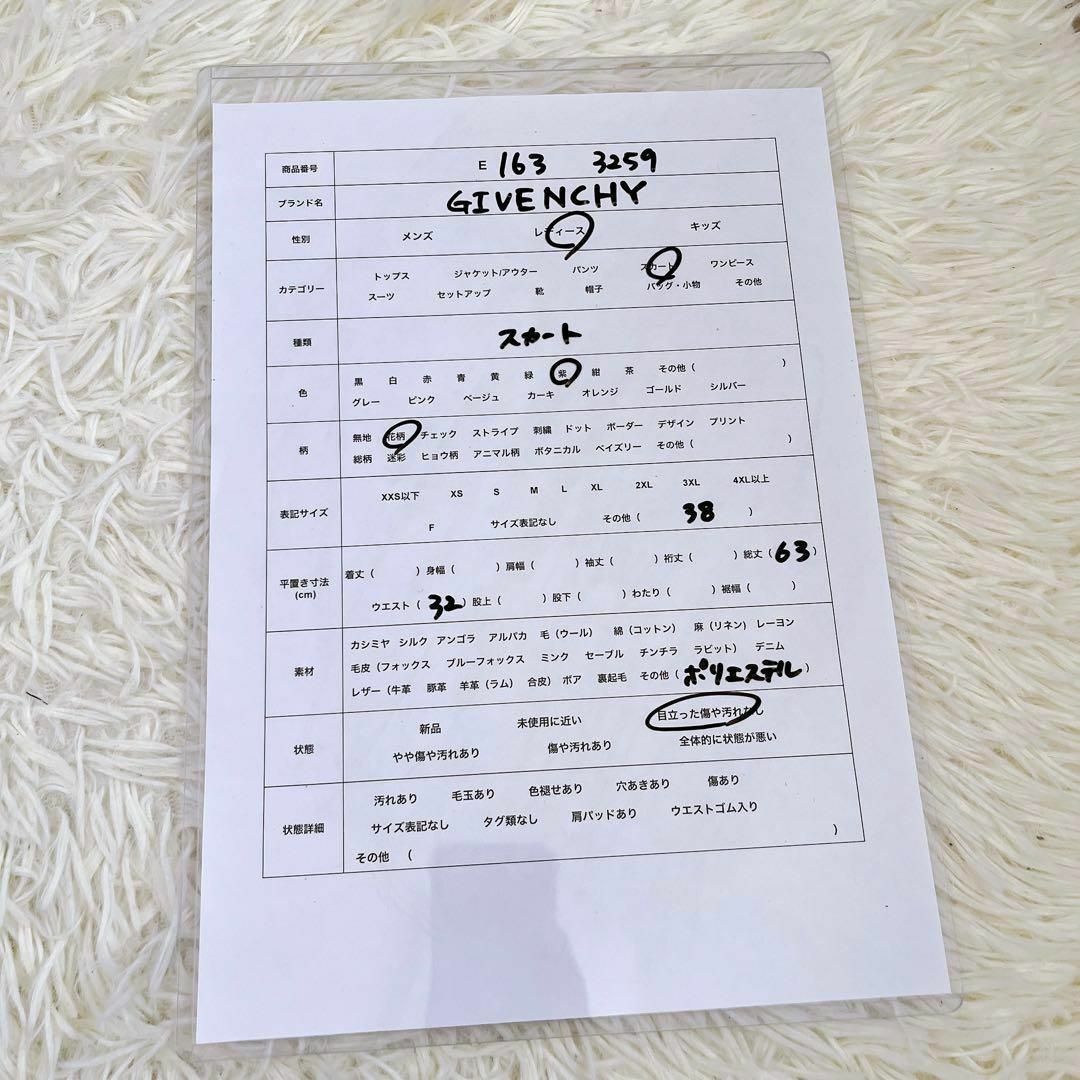 商品番号 E 163 3259
ブランド名 GIVENCHY
性別 メンズ レディース キッズ
カテゴリー
トップス ジャケット/アウター パンツ スカート ワンピース
スーツ セットアップ 靴 帽子 バッグ・小物 その他
種類 スカート
色
黒 白 赤 青 黄 緑 紫 紺 茶 その他( )
グレー ピンク ベージュ カーキ オレンジ ゴールド シルバー
柄
無地 花柄 チェック ストライプ 刺繍 ドット ボーダー デザイン プリント
総柄 迷彩 ヒョウ柄 アニマル柄 ボタニカル ペイズリー その他( )
表記サイズ
XXS以下 XS S M L XL 2XL 3XL 4XL以上
F サイズ表記なし その他( 38 )
平置き寸法
(cm)
着丈( )身幅( )肩幅( )袖丈( )裄丈( )総丈(63)
ウエスト(32)股上( )股下( )わたり( )裾幅( )
素材
カシミヤ シルク アンゴラ アルパカ 毛(ウール) 綿(コットン) 麻(リネン) レーヨン
毛皮(フォックス ブルーフォックス ミンク セーブル チンチラ ラビット) デニム
レザー(牛革 豚革 羊革(ラム) 合皮)ボア 裏起毛 その他(ポリエステル)
状態
新品 未使用に近い 目立った傷や汚れなし
やや傷や汚れあり 傷や汚れあり 全体的に状態が悪い
状態詳細
汚れあり 毛玉あり 色褪せあり 穴あきあり 傷あり
サイズ表記なし タグ類なし 肩パッドあり ウエストゴム入り
その他 ( )